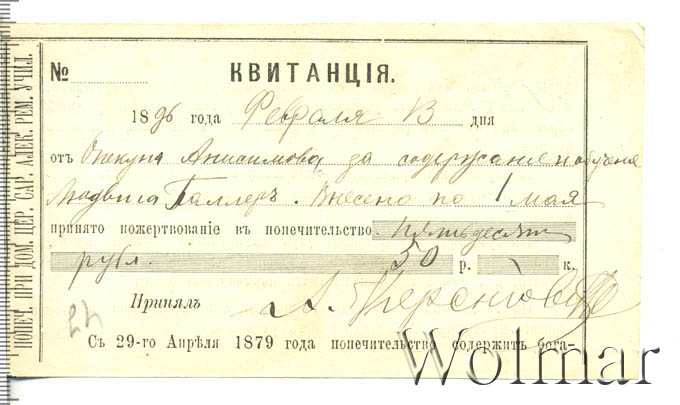 ПОПЕЧ. ПРИ ДОМ. ЦЕР. САР. АЛЕК. РЕМ. УЧИЛ.
№ КВИТАНЦІЯ.
1896 года Февраля 13 дня
отъ Опекуна Анисимова за содержаніе и обучене
Людвига Галлеръ. Внесено по 1 мая
принято пожертвованіе въ попечительство пятьдесят
рубл. 50 р. к.
Принялъ А.
Съ 29-го Апрѣля 1879 года попечительство содержитъ бога-
Wolmar